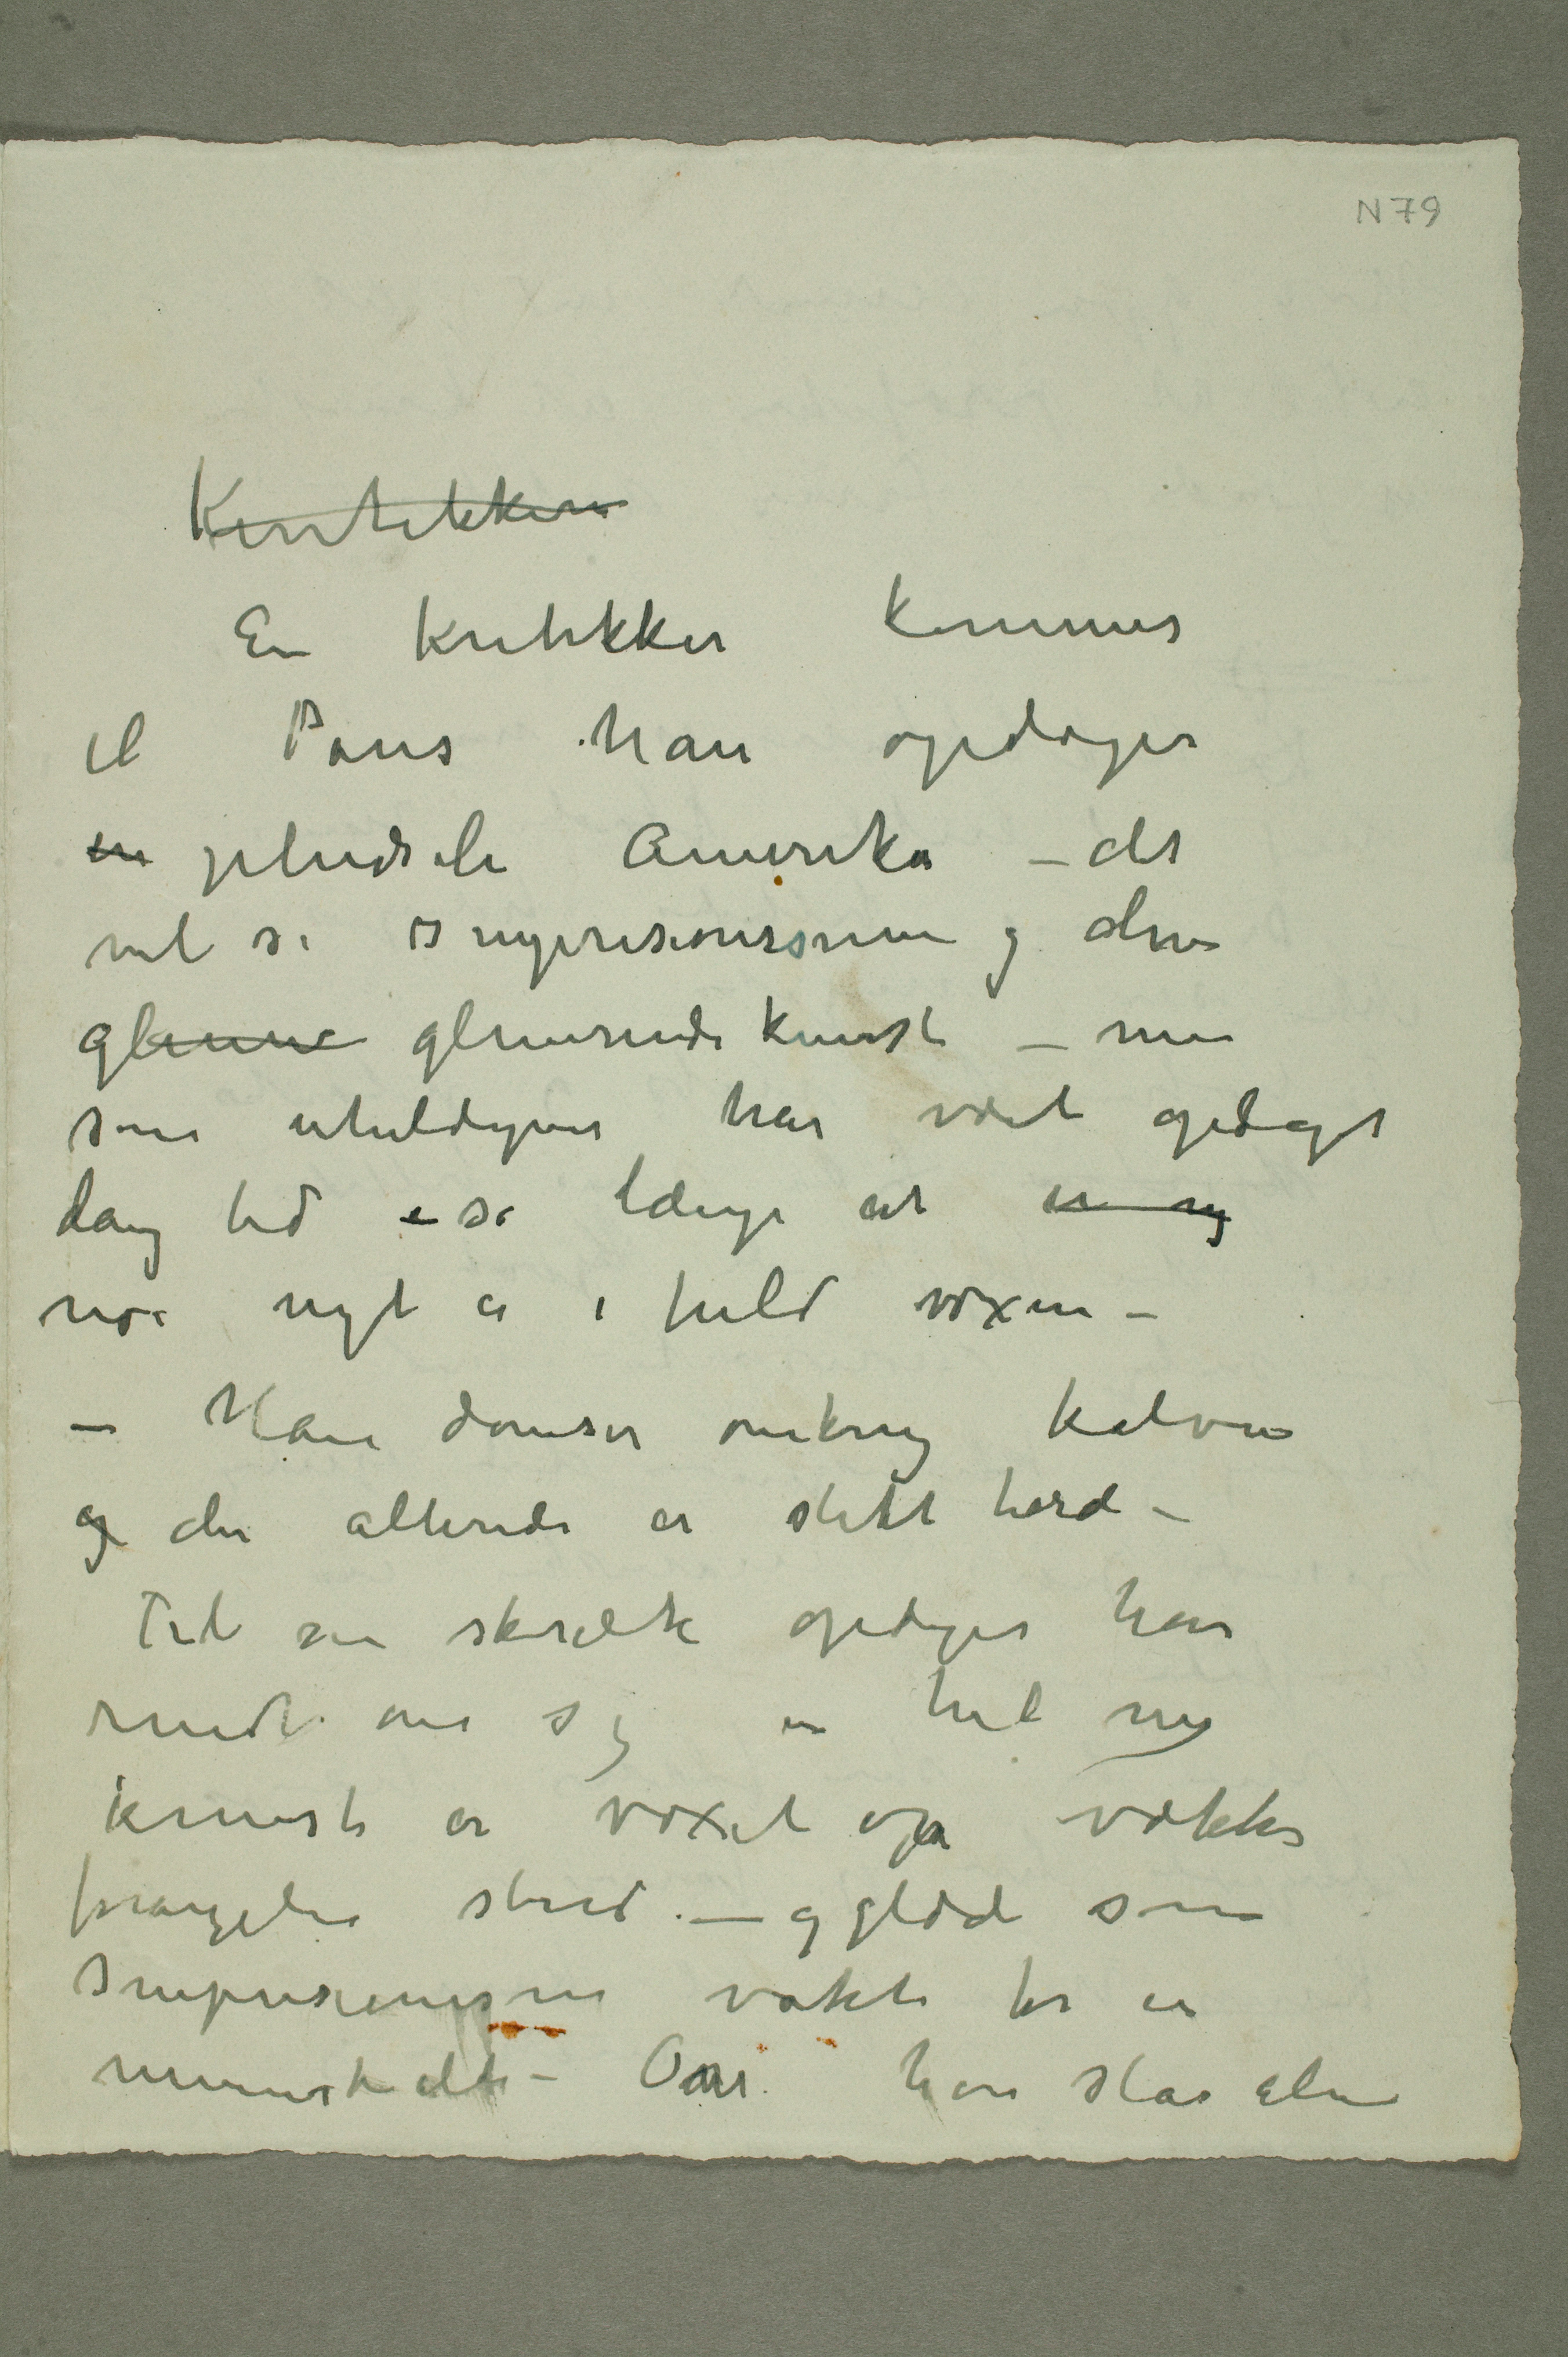 N 79
Kritikkeren
En Kritikker kommer
til Paris han opdager
en pludseli Amerika – det
vil si Impresionismen og den
glimre glimrende kunst – men
som uheldigvis har været opdaget
lang tid – så længe at en ny
noe nyt er i fuld voxen –
– Han danser omkring kalven
og der allerede er slettet hård –
Til sin skræk opdager han
rundt om sig en hel ny
kunst er voxet op vækker
forargelse strid – og glæde som
Impresionismen vakte for en
menneskealder – Om han slår alen